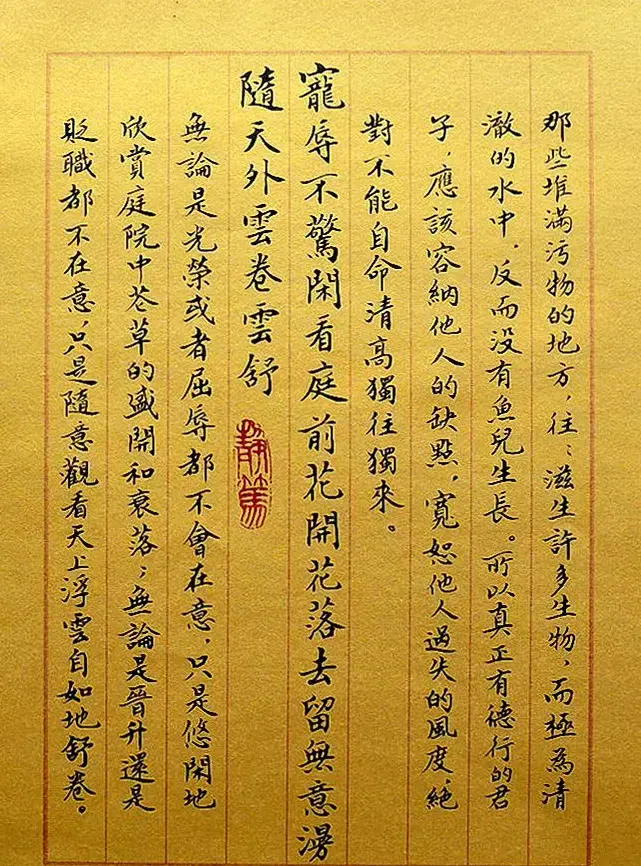 那些堆滿污物的地方，往：滋生許多生物，而極為清
澈的水中，反而没有魚兒生長。所以真正有德行的君
子，應該容納他人的缺點，寬恕他人過失的風度，絕
對不能自命清高獨往獨來。
寵辱不驚閑看庭前花開花落去留無意漫
隨天外雲卷雲舒
靜篤
無論是光榮或者屈辱都不會在意，只是悠閑地
欣賞庭院中花草的盛開和衰落；無論是晉升還是
貶職都不在意，只是隨意觀看天上浮雲自如地舒卷。